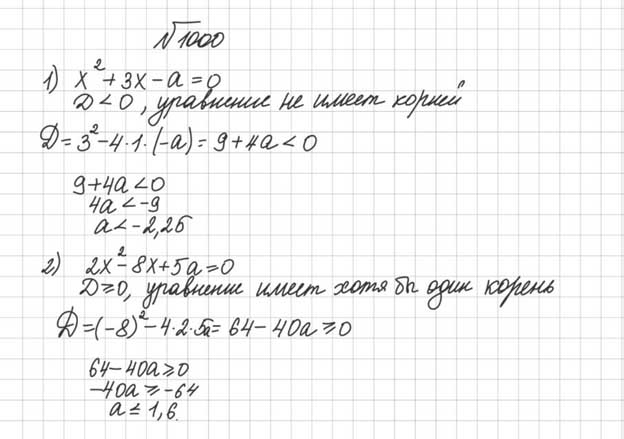 №1000
1) x² + 3x − a = 0
D < 0, уравнение не имеет корней
D = 3² − 4·1·(−a) = 9 + 4a < 0
9 + 4a < 0
4a < −9
a < −2,25
2) 2x² − 8x + 5a = 0
D ≥ 0, уравнение имеет хотя бы один корень
D = (−8)² − 4·2·5a = 64 − 40a ≥ 0
64 − 40a ≥ 0
−40a ≥ −64
a ≤ 1,6.